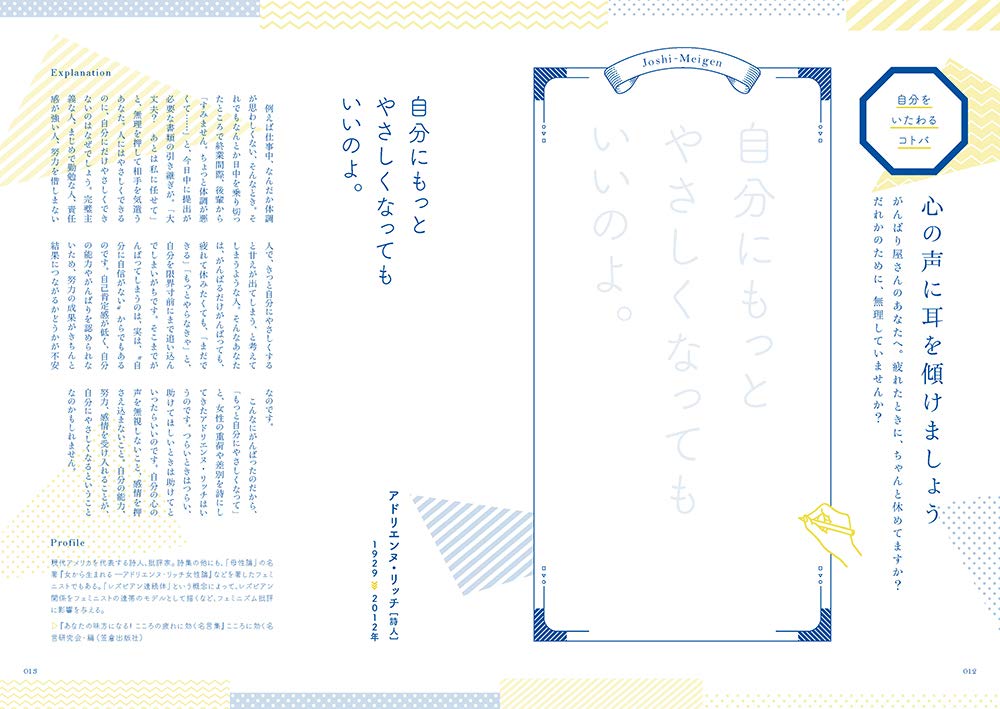 自分を
いたわる
コトバ
心の声に耳を傾けましょう
がんばり屋さんのあなたへ。疲れたときに、ちゃんと休めてますか？
だれかのために、無理していませんか？
Joshi-Meigen
自分にもっと
やさしくなっても
いいのよ。
012
自分にもっと
やさしくなっても
いいのよ。
アドリエンヌ・リッチ［詩人］
1929 2012年
Explanation
例えば仕事中、なんだか体調
が思わしくない、そんなとき。そ
れでもなんとか日中を乗り切っ
たところで終業間際、後輩から
「すみません、ちょっと体調が悪
くて……」と、今日中に提出が
必要な書類の引き継ぎが。「大
丈夫？　あとは私に任せて」
と、無理を押して相手を気遣う
あなた。人にはやさしくできる
のに、自分にだけやさしくでき
ないのはなぜでしょう。完璧主
義な人、まじめで勤勉な人、責任
感が強い人、努力を惜しまない
人で、きっと自分にやさしくする
と甘えが出てしまう、と考えて
しまうような人。そんなあなた
は、がんばるだけがんばっても、
疲れて休みたくても、「まだで
きる」「もっとやらなきゃ」と、
自分を限界寸前にまで追い込ん
でしまいがちです。そこまでが
んばってしまうのは、実は、“自
分に自信がない”からでもある
のです。自己肯定感が低く、自分
の能力やがんばりを認められな
いため、努力の成果がきちんと
結果につながるかどうかが不安
なのです。
こんなにがんばったのだから、
「もっと自分にやさしくなって」
と、女性の重荷や差別を詩にし
てきたアドリエンヌ・リッチはい
うのです。つらいときはつらい、
助けてほしいときは助けてと
いったらいいのです。自分の心の
声を無視しないこと、感情を押
さえ込まないこと。自分の能力、
努力、感情を受け入れることが、
自分にやさしくなるということ
なのかもしれません。
Profile
現代アメリカを代表する詩人、批評家。詩集の他にも、「母性論」の名
著『女から生まれる ―アドリエンヌ・リッチ女性論』などを著したフェミ
ニストでもある。「レズビアン連続体」という概念によって、レズビアン
関係をフェミニストの連帯のモデルとして描くなど、フェミニズム批評
に影響を与える。
▷『あなたの味方になる！ こころの疲れに効く名言集』こころに効く名
言研究会・編（笠倉出版社）
013